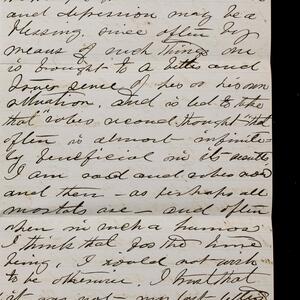 and depression may be a
blessing, since often by
means of such things one
is brought to a better and
truer sense of his or his own
situation, and is led to take
that "sober second thought" that
often is almost infinite-
ly beneficial in its results.
I am sad and sober now
and then - as perhaps all
mortals are - and often
when in such a humor
I think that for the time
being, I would not wish
to be otherwise. I trust that
it was not